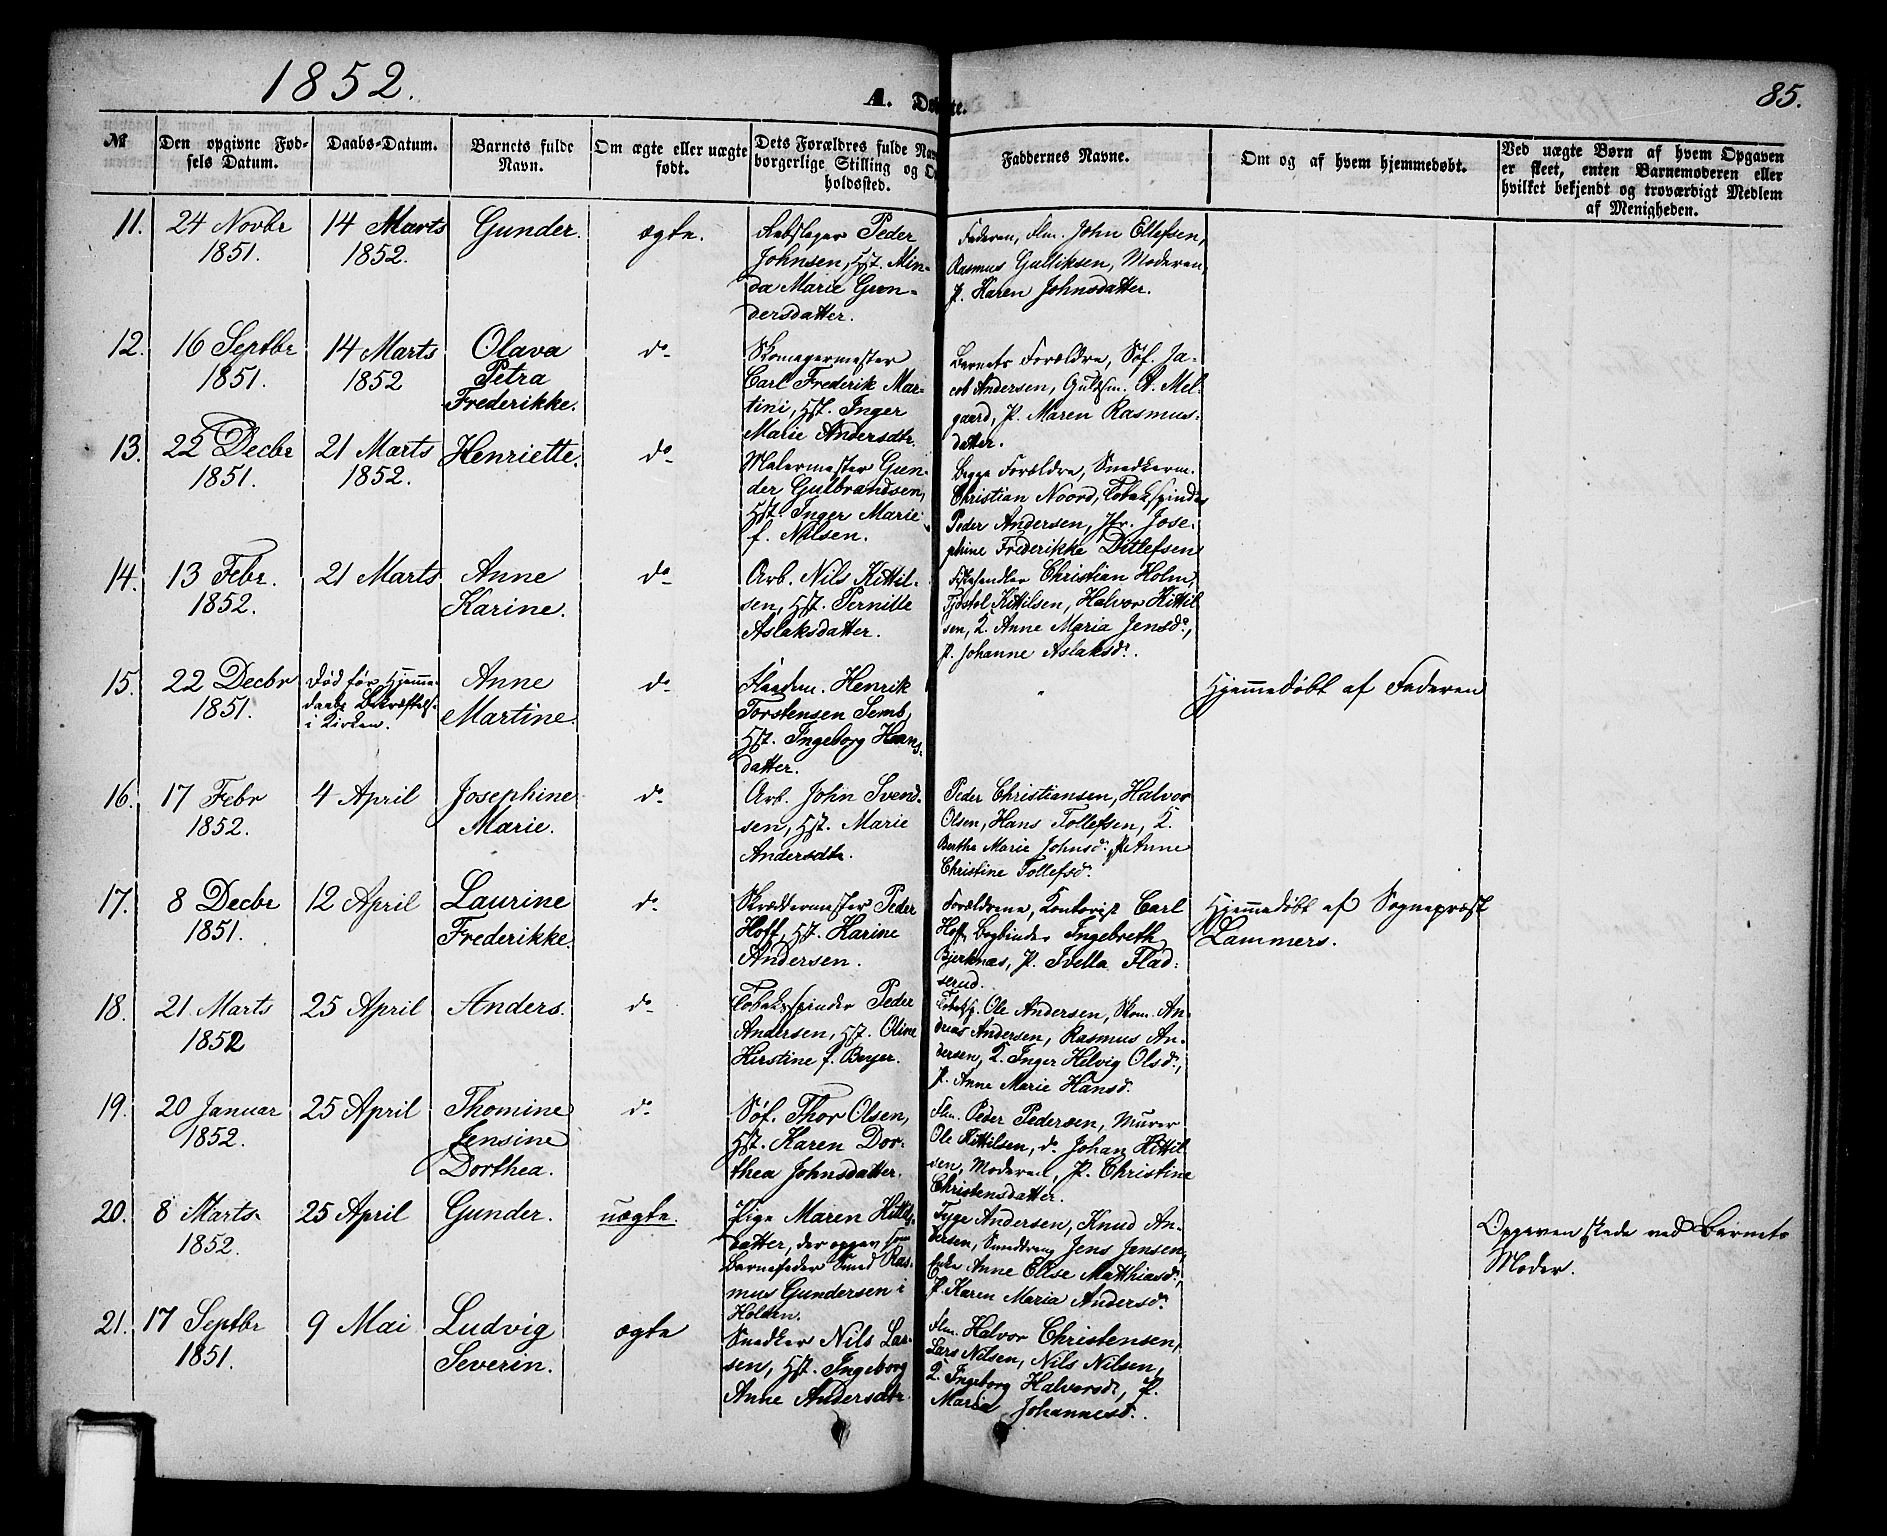 1852.
A. Døbte.
85.
№
Den opgivne Fød-
sels Datum.
Daabs-Datum.
Barnets fulde
Navn.
Om ægte eller uægte
født.
Dets Forældres fulde Nav
borgerlige Stilling og O
holdssted.
Faddernes Navne.
Om og af hvem hjemmedøbt.
Ved uægte Børn af hvem Opgaven
er skeet, enten Barnemoderen eller
hvilket bekjendt og troværdigt Medlem
af Menigheden.
11.
24 Novbr
1851.
14 Marts
1852.
Gunder.
ægte.
Rebslager Peder
Johnsen, Hst. Min-
da Marie Gun-
dersdatter.
Faderen, Flm. John Ellefsen,
Rasmus Gulliksen, Moderen,
P. Karen Johnsdatter.
12.
16 Septbr
1851.
14 Marts
1852
Olava
Petra
Frederikke.
do
Skomagermester
Carl Frederik Mar-
tini, Hst. Inger
Marie Andersdtr.
Barnets Forældre, Søf. Ja-
cob Andersen, Guldsm. A. Mel-
gaard, P. Maren Rasmus-
datter.
13.
22 Decbr
1851.
21 Marts
1852.
Henriette.
do
Malermester Gun-
der Gulbrandsen,
Hst. Inger Marie
f. Nilsen.
Begge Forældre, Snedkerm.
Christian Noord, Tobakspinder
Peder Andersen, Jfr. Jose-
phine Frederikke Ditlefsen
14.
13 Febr.
1852.
21 Marts
Anne
Karine.
do
Arb. Nils Kittil-
sen, Hst. Pernille
Aslaksdatter.
Fiskehandler Christian Holm,
Tjøstol Kittilsen, Halvor Kittil
sen, K. Anne Maria Jensd.,
P. Johanne Aslaksd.
15.
22 Decbr
1851.
Død før Hjemme-
daabs Bekræftelse
i Kirken.
Anne
Martine.
do
Flaadm. Henrik
Torstensen Semb,
Hst. Ingeborg Hans-
datter.
"
Hjemmedøbt af Faderen
16.
17 Febr
1852.
4 April
Josephine
Marie.
do
Arb. John Svend-
sen, Hst. Marie
Andersdtr.
Peder Christiansen, Halvor
Olsen, Hans Tollefsen, K.
Berthe Marie Johnsd. P. Anne
Christine Tollefsd.
17.
8 Decbr
1851.
12 April
Laurine
Frederikke.
do
Skræddermester Peder
Hoff, Hst. Karine
Andersen.
Forældrene, Kontorist Carl
Hoff, Bogbinder Ingebreth
Bjerknæs, P. Tvella Flad-
serud.
Hjemmedøbt af Sognepræst
Lammers.
18.
21 Marts
1852
25 April
Anders.
do
Tobakspinder Peder
Andersen, Hst. Oline
Kirstine f. Beyer.
Tobaksp. Ole Andersen, Skom. An-
dreas Andersen, Rasmus An-
dersen, K. Inger Helvig Olsd.,
P. Anne Marie Hansd.
19.
20 Januar
1852.
25 April
Thomine
Jensine
Dorthea.
do
Søf. Thor Olsen,
Hst. Karen Dor-
thea Johnsdatter.
Flm. Peder Pedersen, Murer
Ole Kittilsen, do Johan Kittil
sen, Moderen, P. Christine
Christensdatter.
20.
8 Marts
1852.
25 April
Gunder.
uægte.
Pige Maren Hills-
datter, der opgav som
Barnefader Smed Ras-
mus Gundersen i
Holden.
Tyge Andersen, Knud An-
dersen, Smeddreng Jens Jensen,
Enke Anne Elise Matthiasd.,
P. Karen Maria Andersd.
Opgaven skede ved Barnets
Moder.
21.
17 Septbr
1851.
9 Mai
Ludvig
Severin.
ægte
Snedker Nils Lar-
sen, Hst. Ingeborg
Anne Andersdtr.
Flm. Halvor Christensen,
Lars Nilsen, Nils Nilsen,
K. Ingeborg Halvorsd., P.
Maria Johannesd.